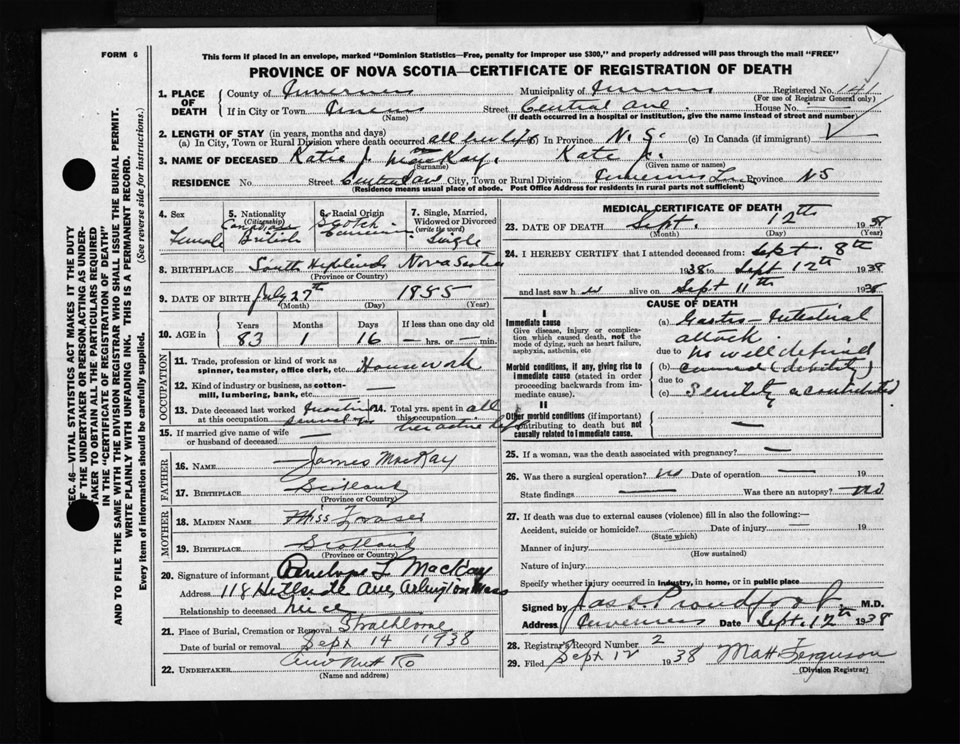 FORM 6
This form if placed in an envelope, marked "Dominion Statistics—Free, penalty for improper use $300," and properly addressed will pass through the mail "FREE"
PROVINCE OF NOVA SCOTIA—CERTIFICATE OF REGISTRATION OF DEATH
SEC. 46—VITAL STATISTICS ACT MAKES IT THE DUTY
OF THE UNDERTAKER OR PERSON ACTING AS UNDER-
TAKER TO OBTAIN ALL THE PARTICULARS REQUIRED
IN THE "CERTIFICATE OF REGISTRATION OF DEATH"
AND TO FILE THE SAME WITH THE DIVISION REGISTRAR WHO SHALL ISSUE THE BURIAL PERMIT.
WRITE PLAINLY WITH UNFADING INK. THIS IS A PERMANENT RECORD.
Every item of information should be carefully supplied. (See reverse side for instructions.)
1. PLACE OF DEATH
County of Inverness Municipality of Registered No. 14
(For use of Registrar General only)
If in City or Town Street Central Ave. House No.
(Name) (If death occurred in a hospital or institution, give the name instead of street and number)
2. LENGTH OF STAY (in years, months and days)
(a) In City, Town or Rural Division where death occurred all her life (b) In Province N. S. (c) In Canada (if immigrant)
3. NAME OF DECEASED Katie J. MacKay. Kate J.
(Surname) (Given name or names)
RESIDENCE No. Street Central Ave City, Town or Rural Division Inverness Province NS
(Residence means usual place of abode. Post Office Address for residents in rural parts not sufficient)
4. Sex
Female
5. Nationality
(Citizenship)
Canadian
British
6. Racial Origin
Scotch
7. Single, Married, Widowed or Divorced
(write the word)
Single
8. BIRTHPLACE South Highlands Nova Scotia
(Province or Country)
9. DATE OF BIRTH July 27th 1855
(Month) (Day) (Year)
10. AGE in
Years Months Days If less than one day
83 1 16 — hrs. or — min.
OCCUPATION
11. Trade, profession or kind of work as
spinner, teamster, office clerk, etc. Housework
12. Kind of industry or business, as cotton-
mill, lumbering, bank, etc. —
13. Date deceased last worked
at this occupation
14. Total yrs. spent in
this occupation all
her active life
15. If married give name of wife
or husband of deceased —
FATHER
16. NAME James MacKay
17. BIRTHPLACE Scotland
(Province or Country)
MOTHER
18. MAIDEN NAME Miss Fraser
19. BIRTHPLACE Scotland
(Province or Country)
20. Signature of informant Penelope L MacKay
Address 118 Hillside Ave Arlington Mass
Relationship to deceased niece
21. Place of Burial, Cremation or Removal Strathlorne
Date of burial or removal Sept 14 1938
22. UNDERTAKER
(Name and address)
MEDICAL CERTIFICATE OF DEATH
23. DATE OF DEATH Sept. 12th 1938
(Month) (Day) (Year)
24. I HEREBY CERTIFY that I attended deceased from: Sept 8th
1938 to Sept 12th 1938
and last saw her alive on Sept 11th 1938
CAUSE OF DEATH
I
Immediate cause
Give disease, injury or complica-
tion which caused death, not the
mode of dying, such as heart failure,
asphyxia, asthenia, etc
(a) Gastro-Intestinal
attack
due to no well defined
Morbid conditions, if any, giving rise to
immediate cause (stated in order
proceeding backwards from im-
mediate cause).
(b) cause (debility)
due to
(c) Senility a contributed
II
Other morbid conditions (if important)
contributing to death but not
causally related to immediate cause. —
25. If a woman, was the death associated with pregnancy? —
26. Was there a surgical operation? no Date of operation — 19
State findings — Was there an autopsy? no
27. If death was due to external causes (violence) fill in also the following:—
Accident, suicide or homicide? - Date of injury — 19
(State which)
Manner of injury
(How sustained)
Nature of injury
Specify whether injury occurred in industry, in home, or in public place
Signed by Jas. Proudfoot M.D.
Address Inverness Date Sept. 12th 1938
28. Registrar's Record Number 2
29. Filed Sept 12 1938 Matt Ferguson
(Division Registrar)